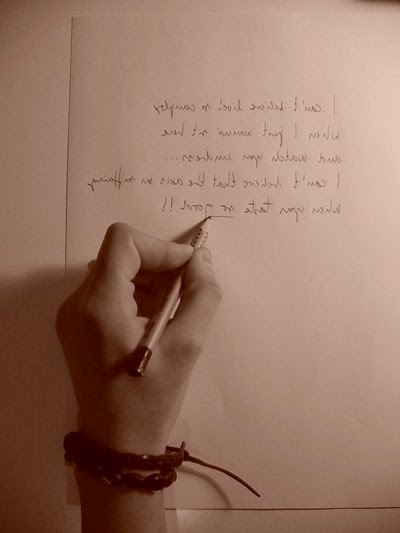 I can't believe live's so complex
when I just wanna sit here
and watch you undress...
I can't believe that the axis on suffering
when you taste so good!!